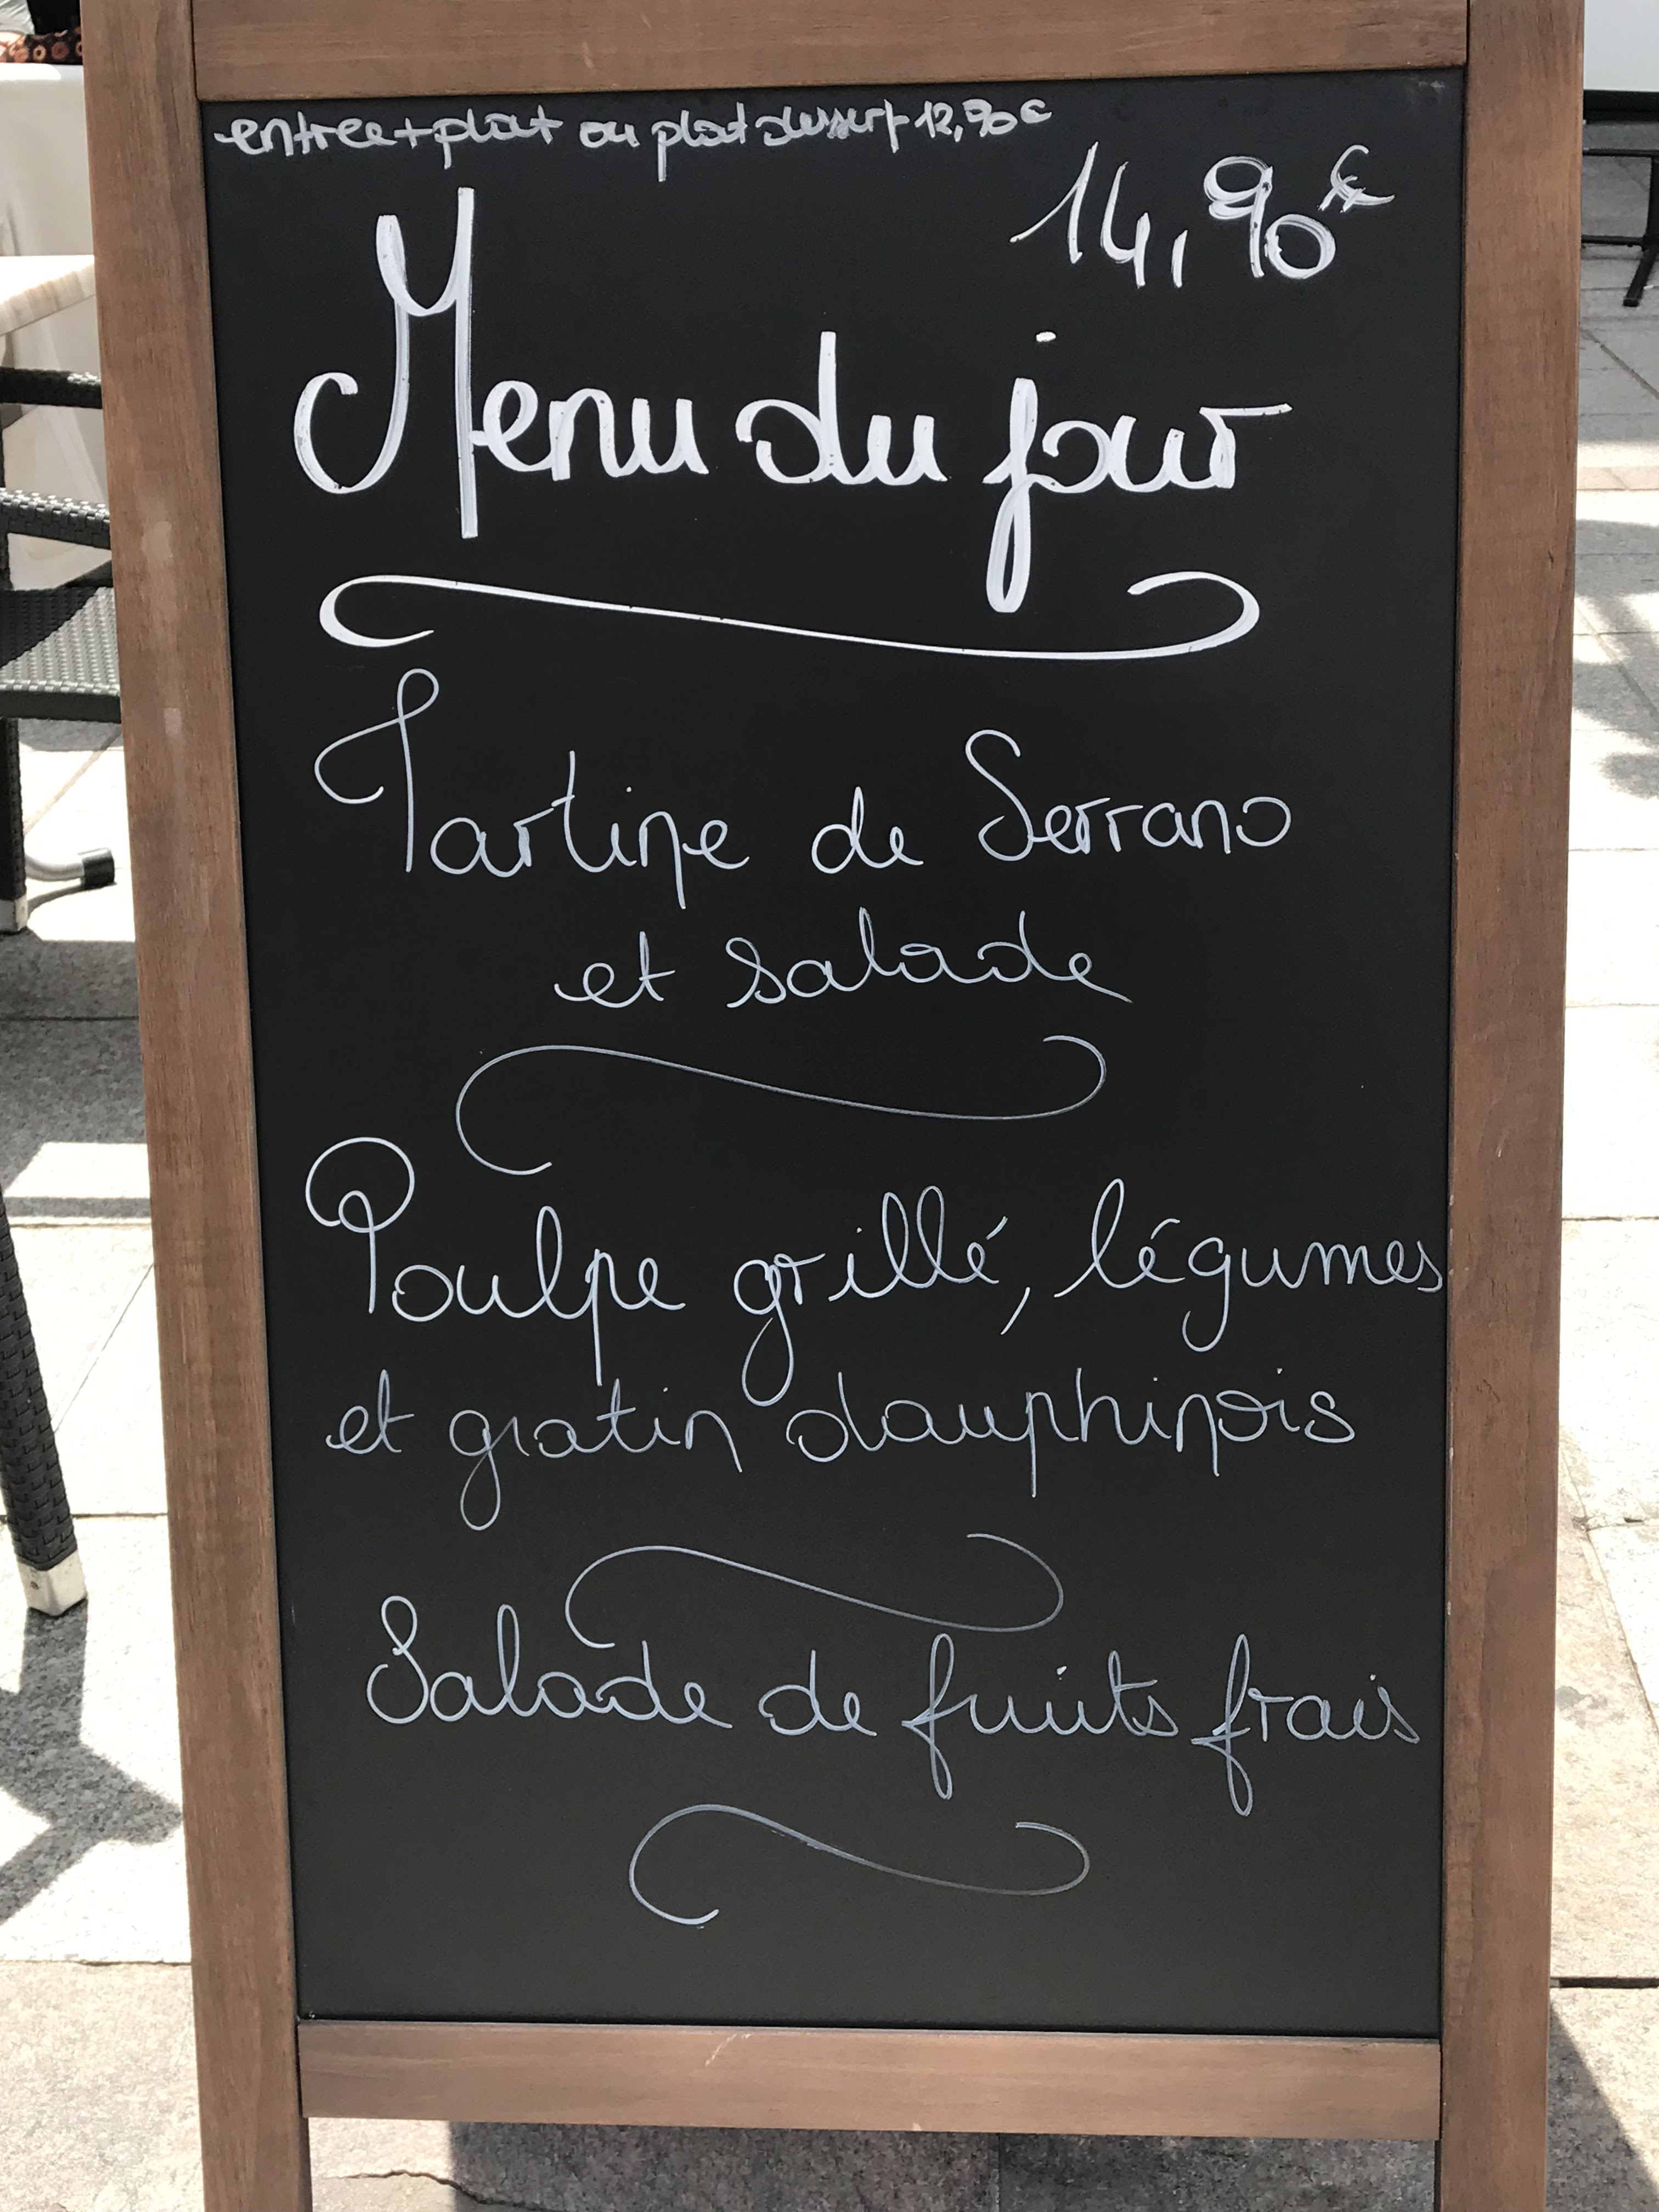 entree+plat ou plat dessert 12,90€
14,90€
Menu du jour
Tartine de Serrano
et salade
Poulpe grillé, légumes
et gratin dauphinois
Salade de fruits frais